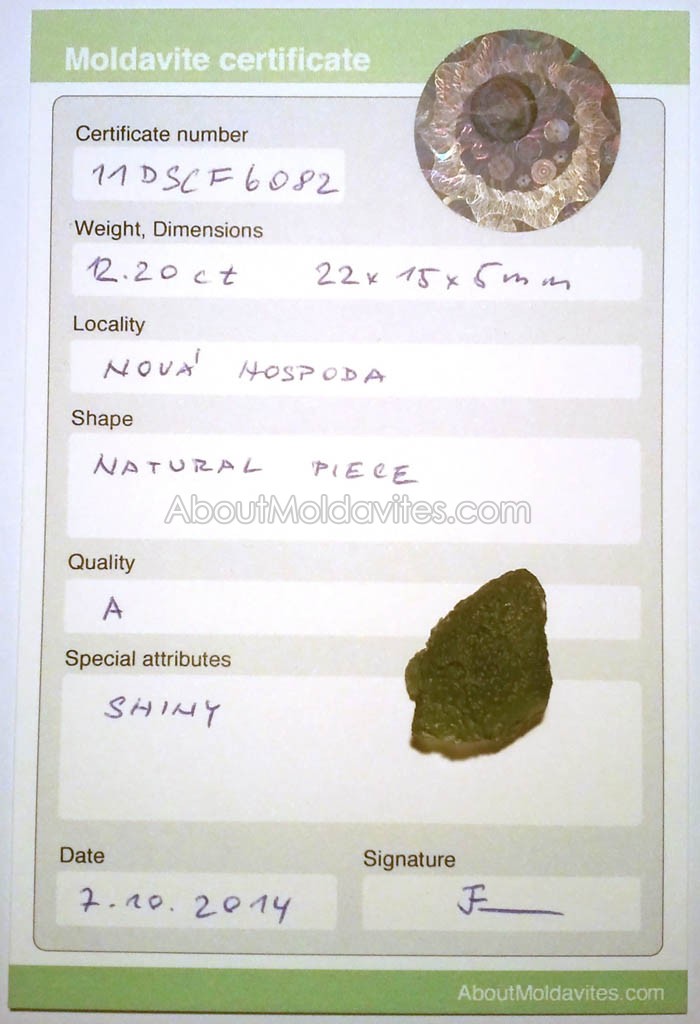 Moldavite certificate
Certificate number
11DSCF6082
Weight, Dimensions
12.20 ct 22x15x5mm
Locality
NOVÁ HOSPODA
Shape
NATURAL PIECE
AboutMoldavites.com
Quality
A
Special attributes
SHINY
Date Signature
7.10.2014
AboutMoldavites.com